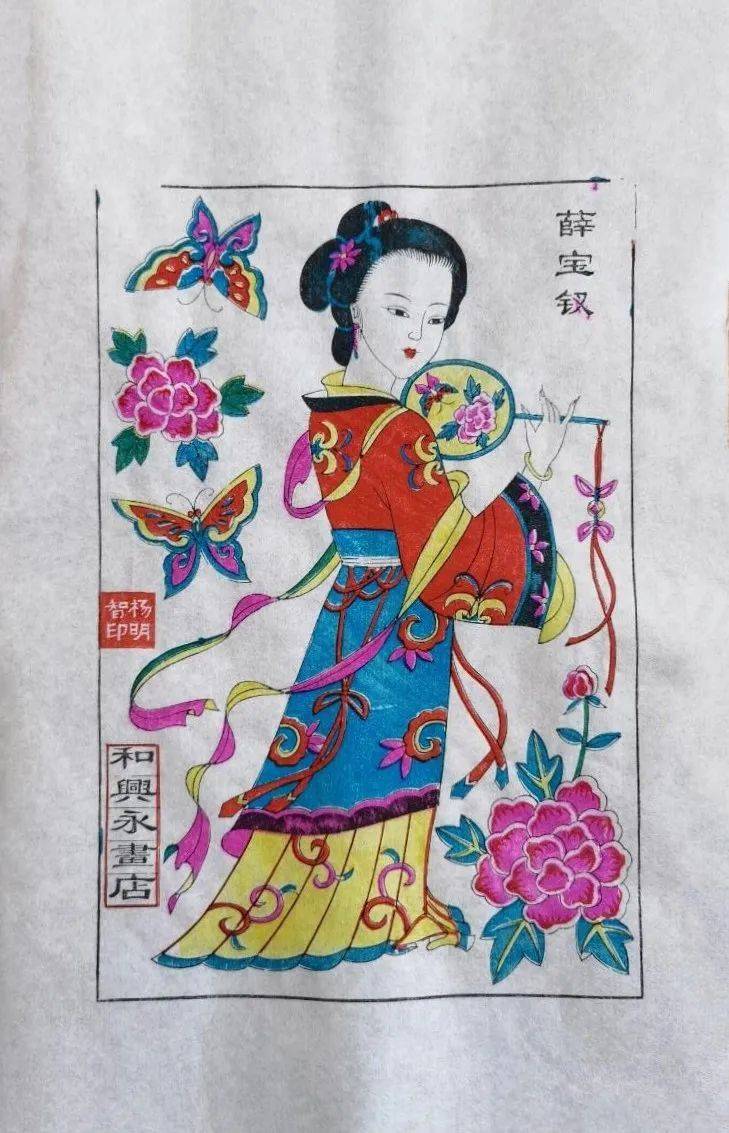 薛宝钗
杨明
智印
和興永畫店